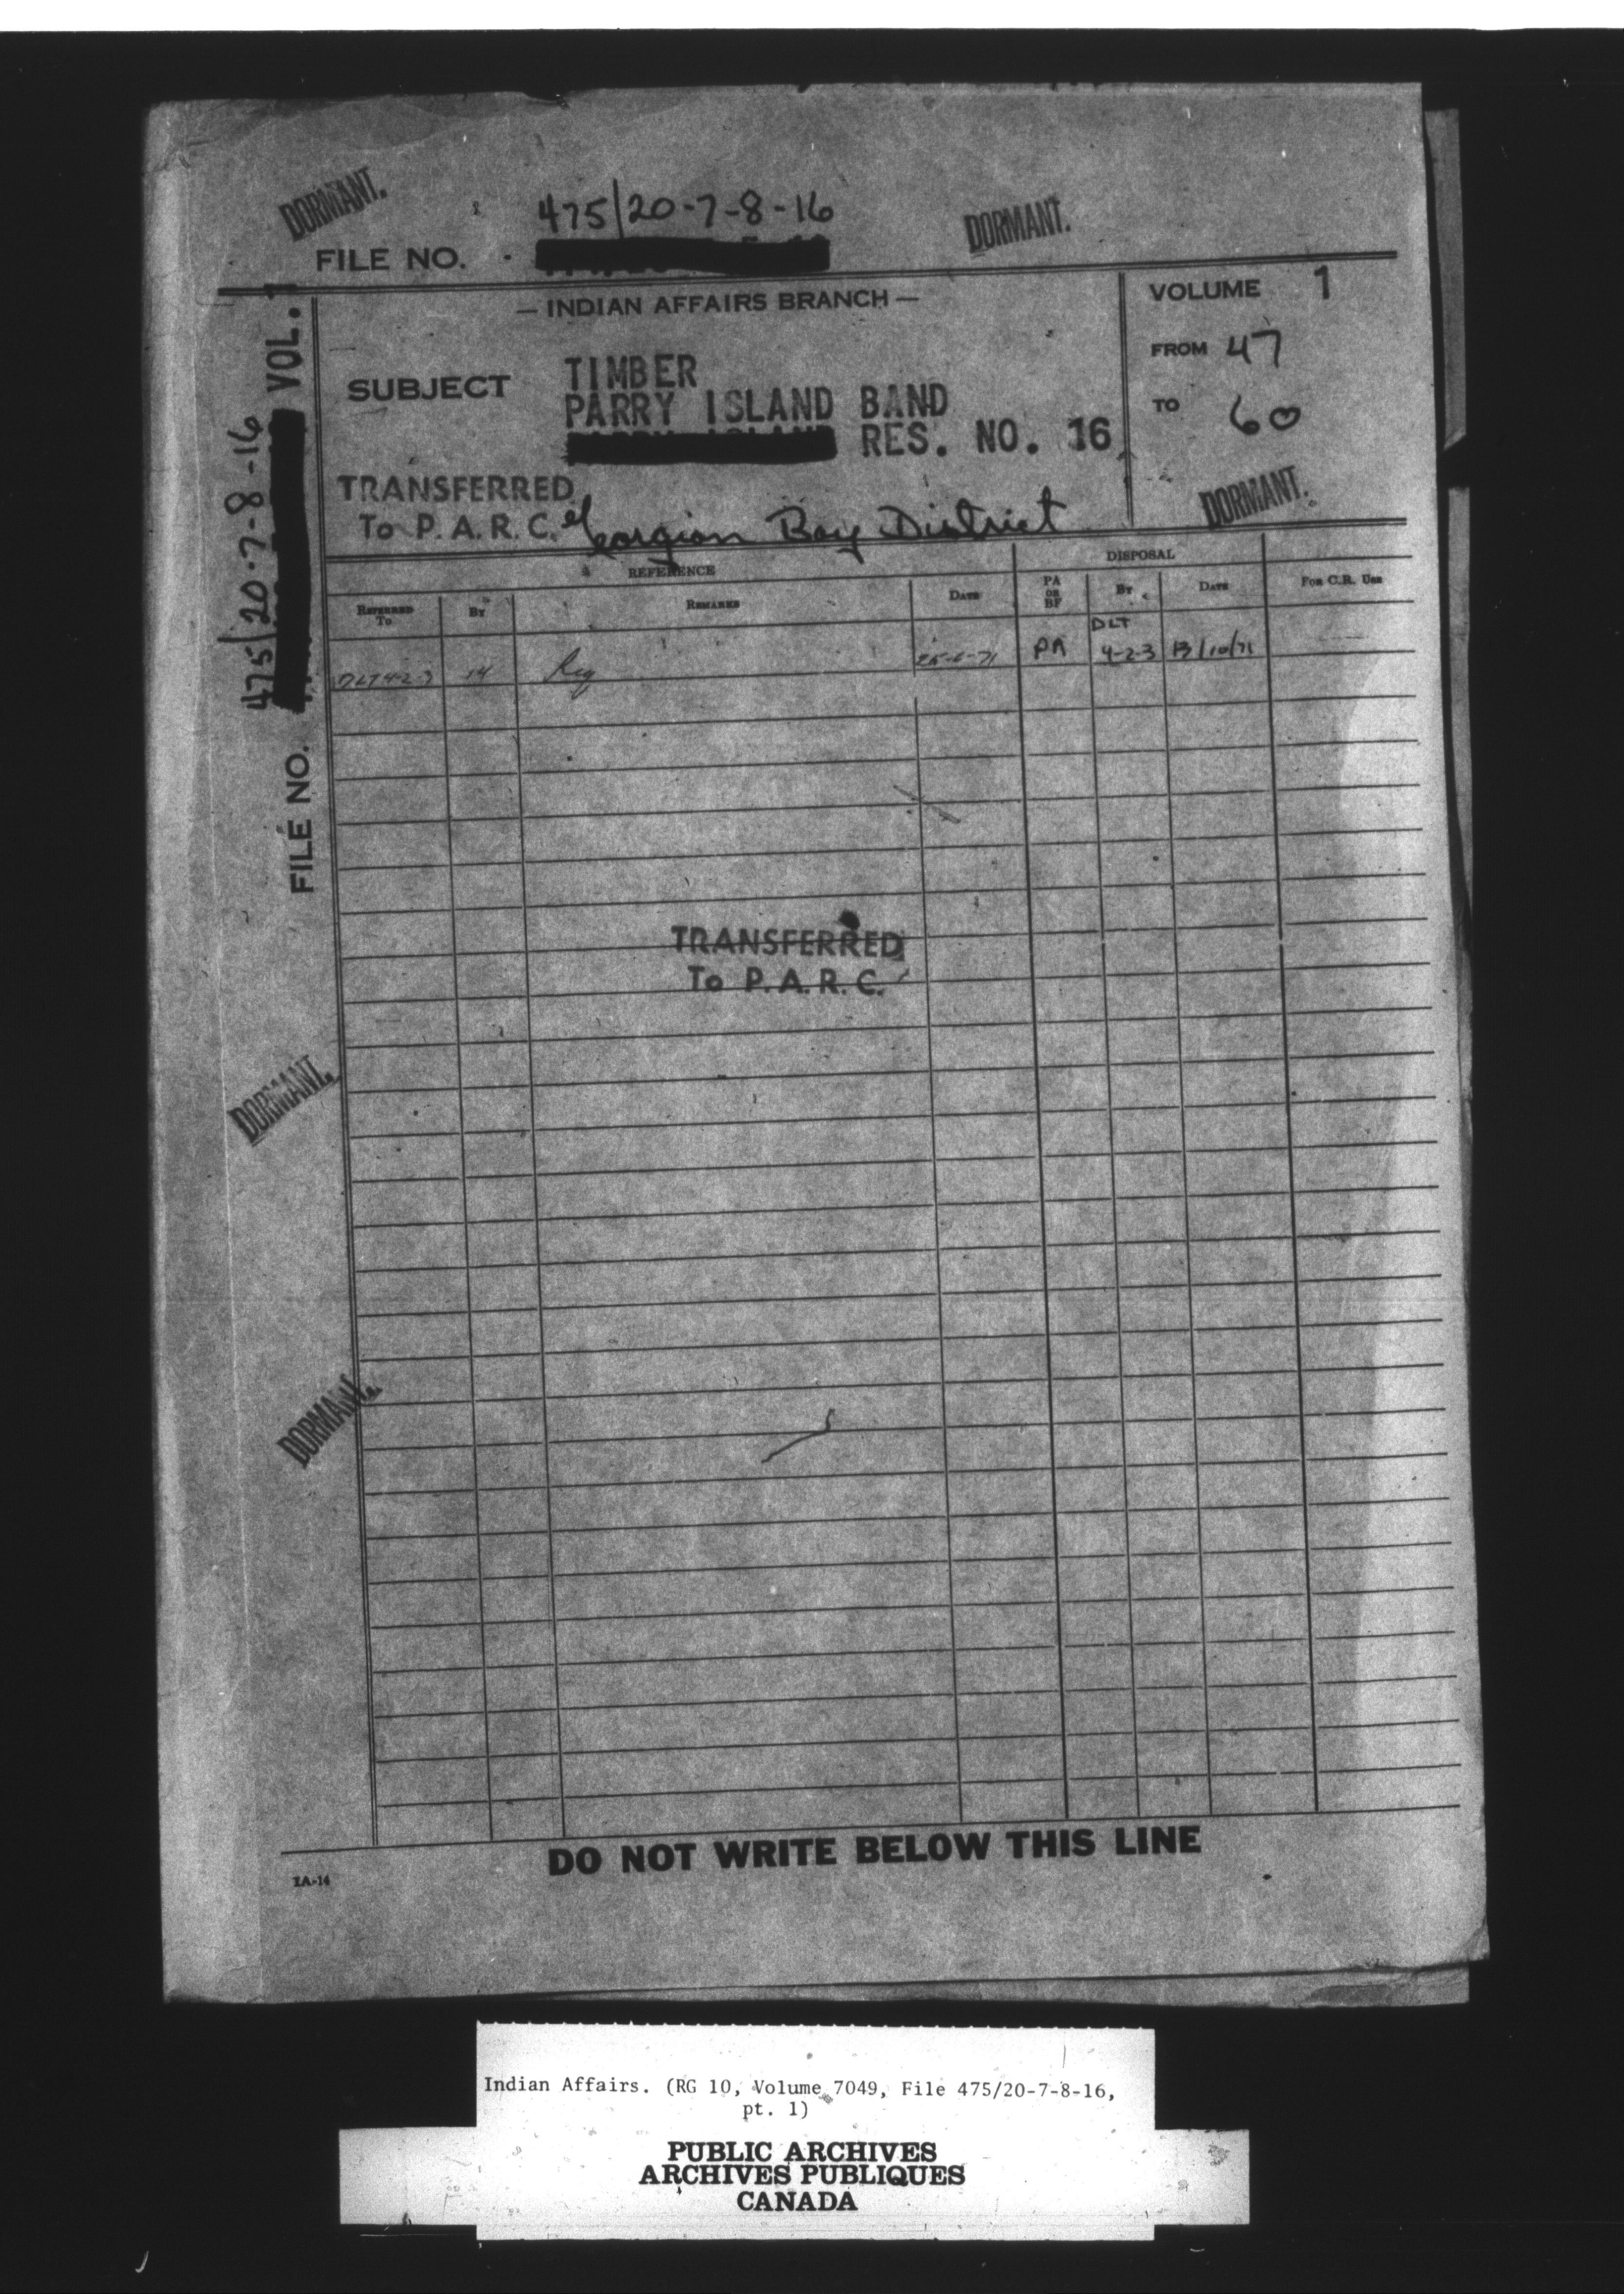 DORMANT.
475/20-7-8-16
DORMANT.
FILE NO.
— INDIAN AFFAIRS BRANCH —
VOLUME 1
SUBJECT
TIMBER
PARRY ISLAND BAND
RES. NO. 16
FROM 47
TO 60
TRANSFERRED
To P.A.R.C.
Georgian Bay District
DORMANT.
FILE NO. 475/20-7-8-16 VOL. 1
REFERENCE
DISPOSAL
REFERRED TO
BY
REMARKS
DATE
PA OR BF
BY
DATE
FOR C.R. USE
DLT 4-2-3 14 Req 25-6-71 PA DLT 4-2-3 13/10/71
TRANSFERRED
To P.A.R.C.
DORMANT.
DORMANT.
DO NOT WRITE BELOW THIS LINE
IA-14
Indian Affairs. (RG 10, Volume 7049, File 475/20-7-8-16,
pt. 1)
PUBLIC ARCHIVES
ARCHIVES PUBLIQUES
CANADA